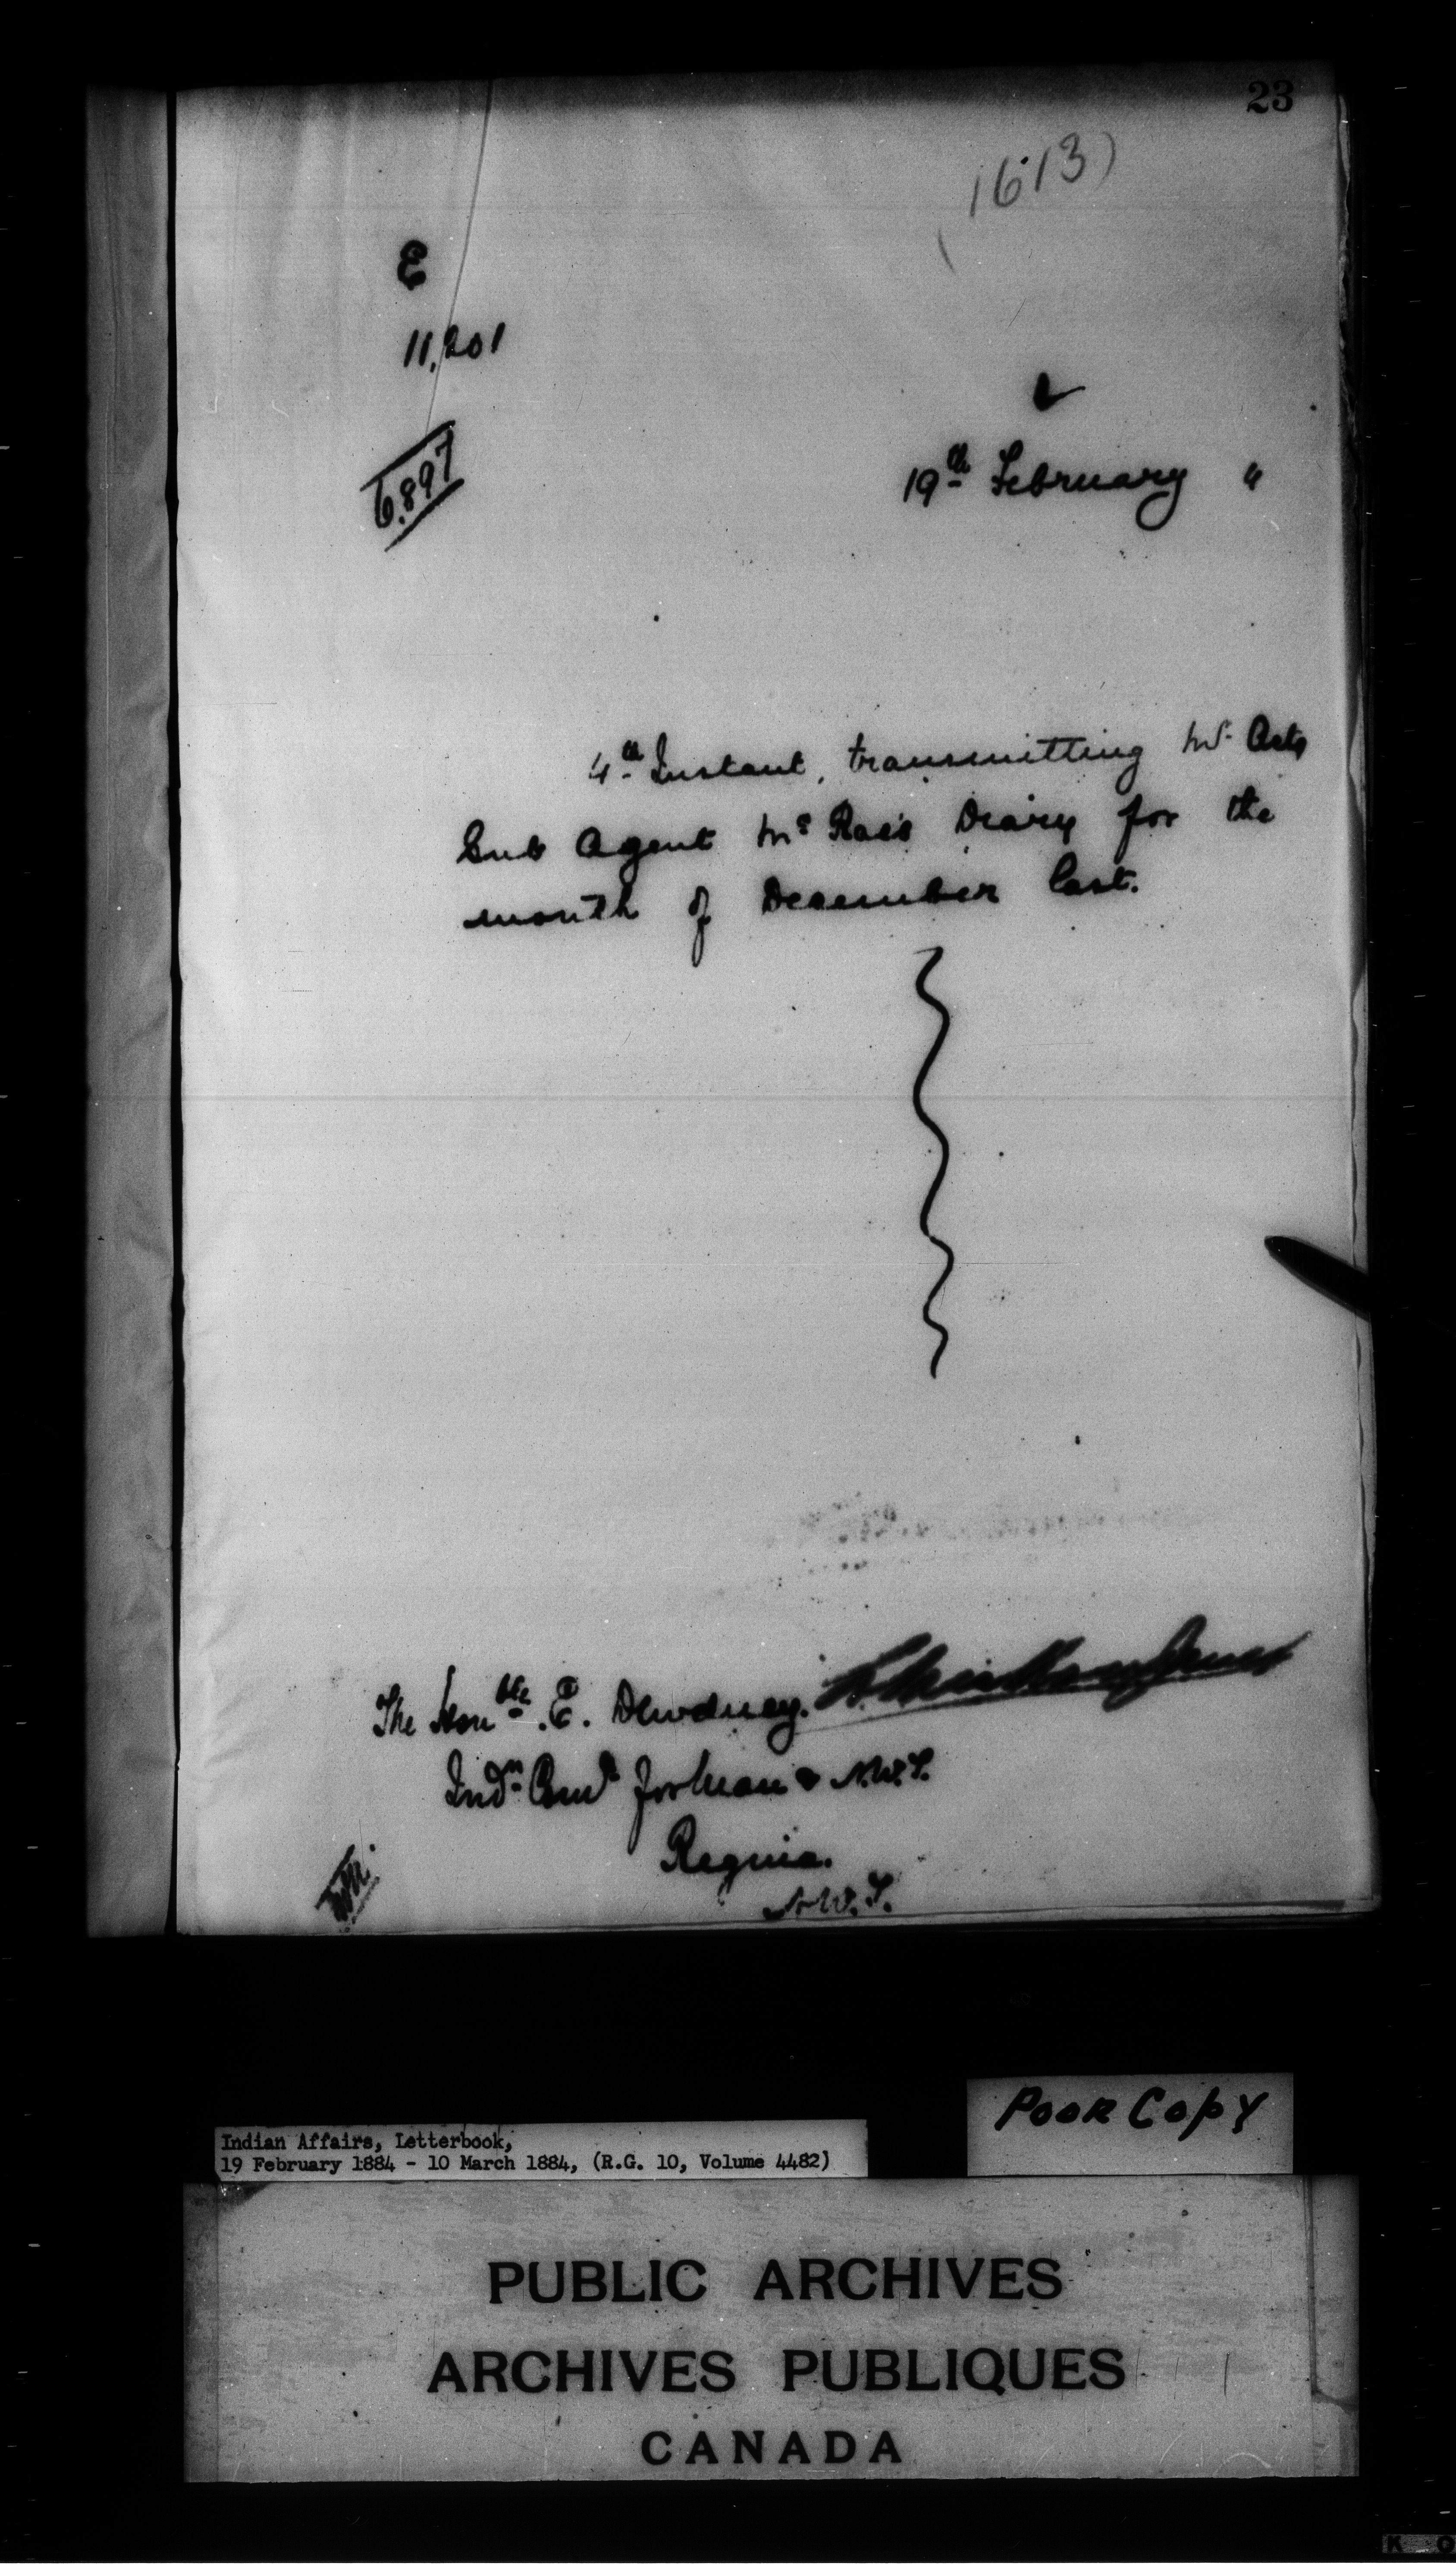 23
1613)
E
11,201
6,897
19th February "
4th Instant, transmitting Mr. Actg
Sub Agent Mc Rae's Diary for the
month of December last.
The Honble. E. Dewdney.
Indn. Comr for Man & N.W.T.
Regina.
N.W.T.
Poor Copy
Indian Affairs, Letterbook,
19 February 1884 - 10 March 1884, (R.G. 10, Volume 4482)
PUBLIC ARCHIVES
ARCHIVES PUBLIQUES
CANADA